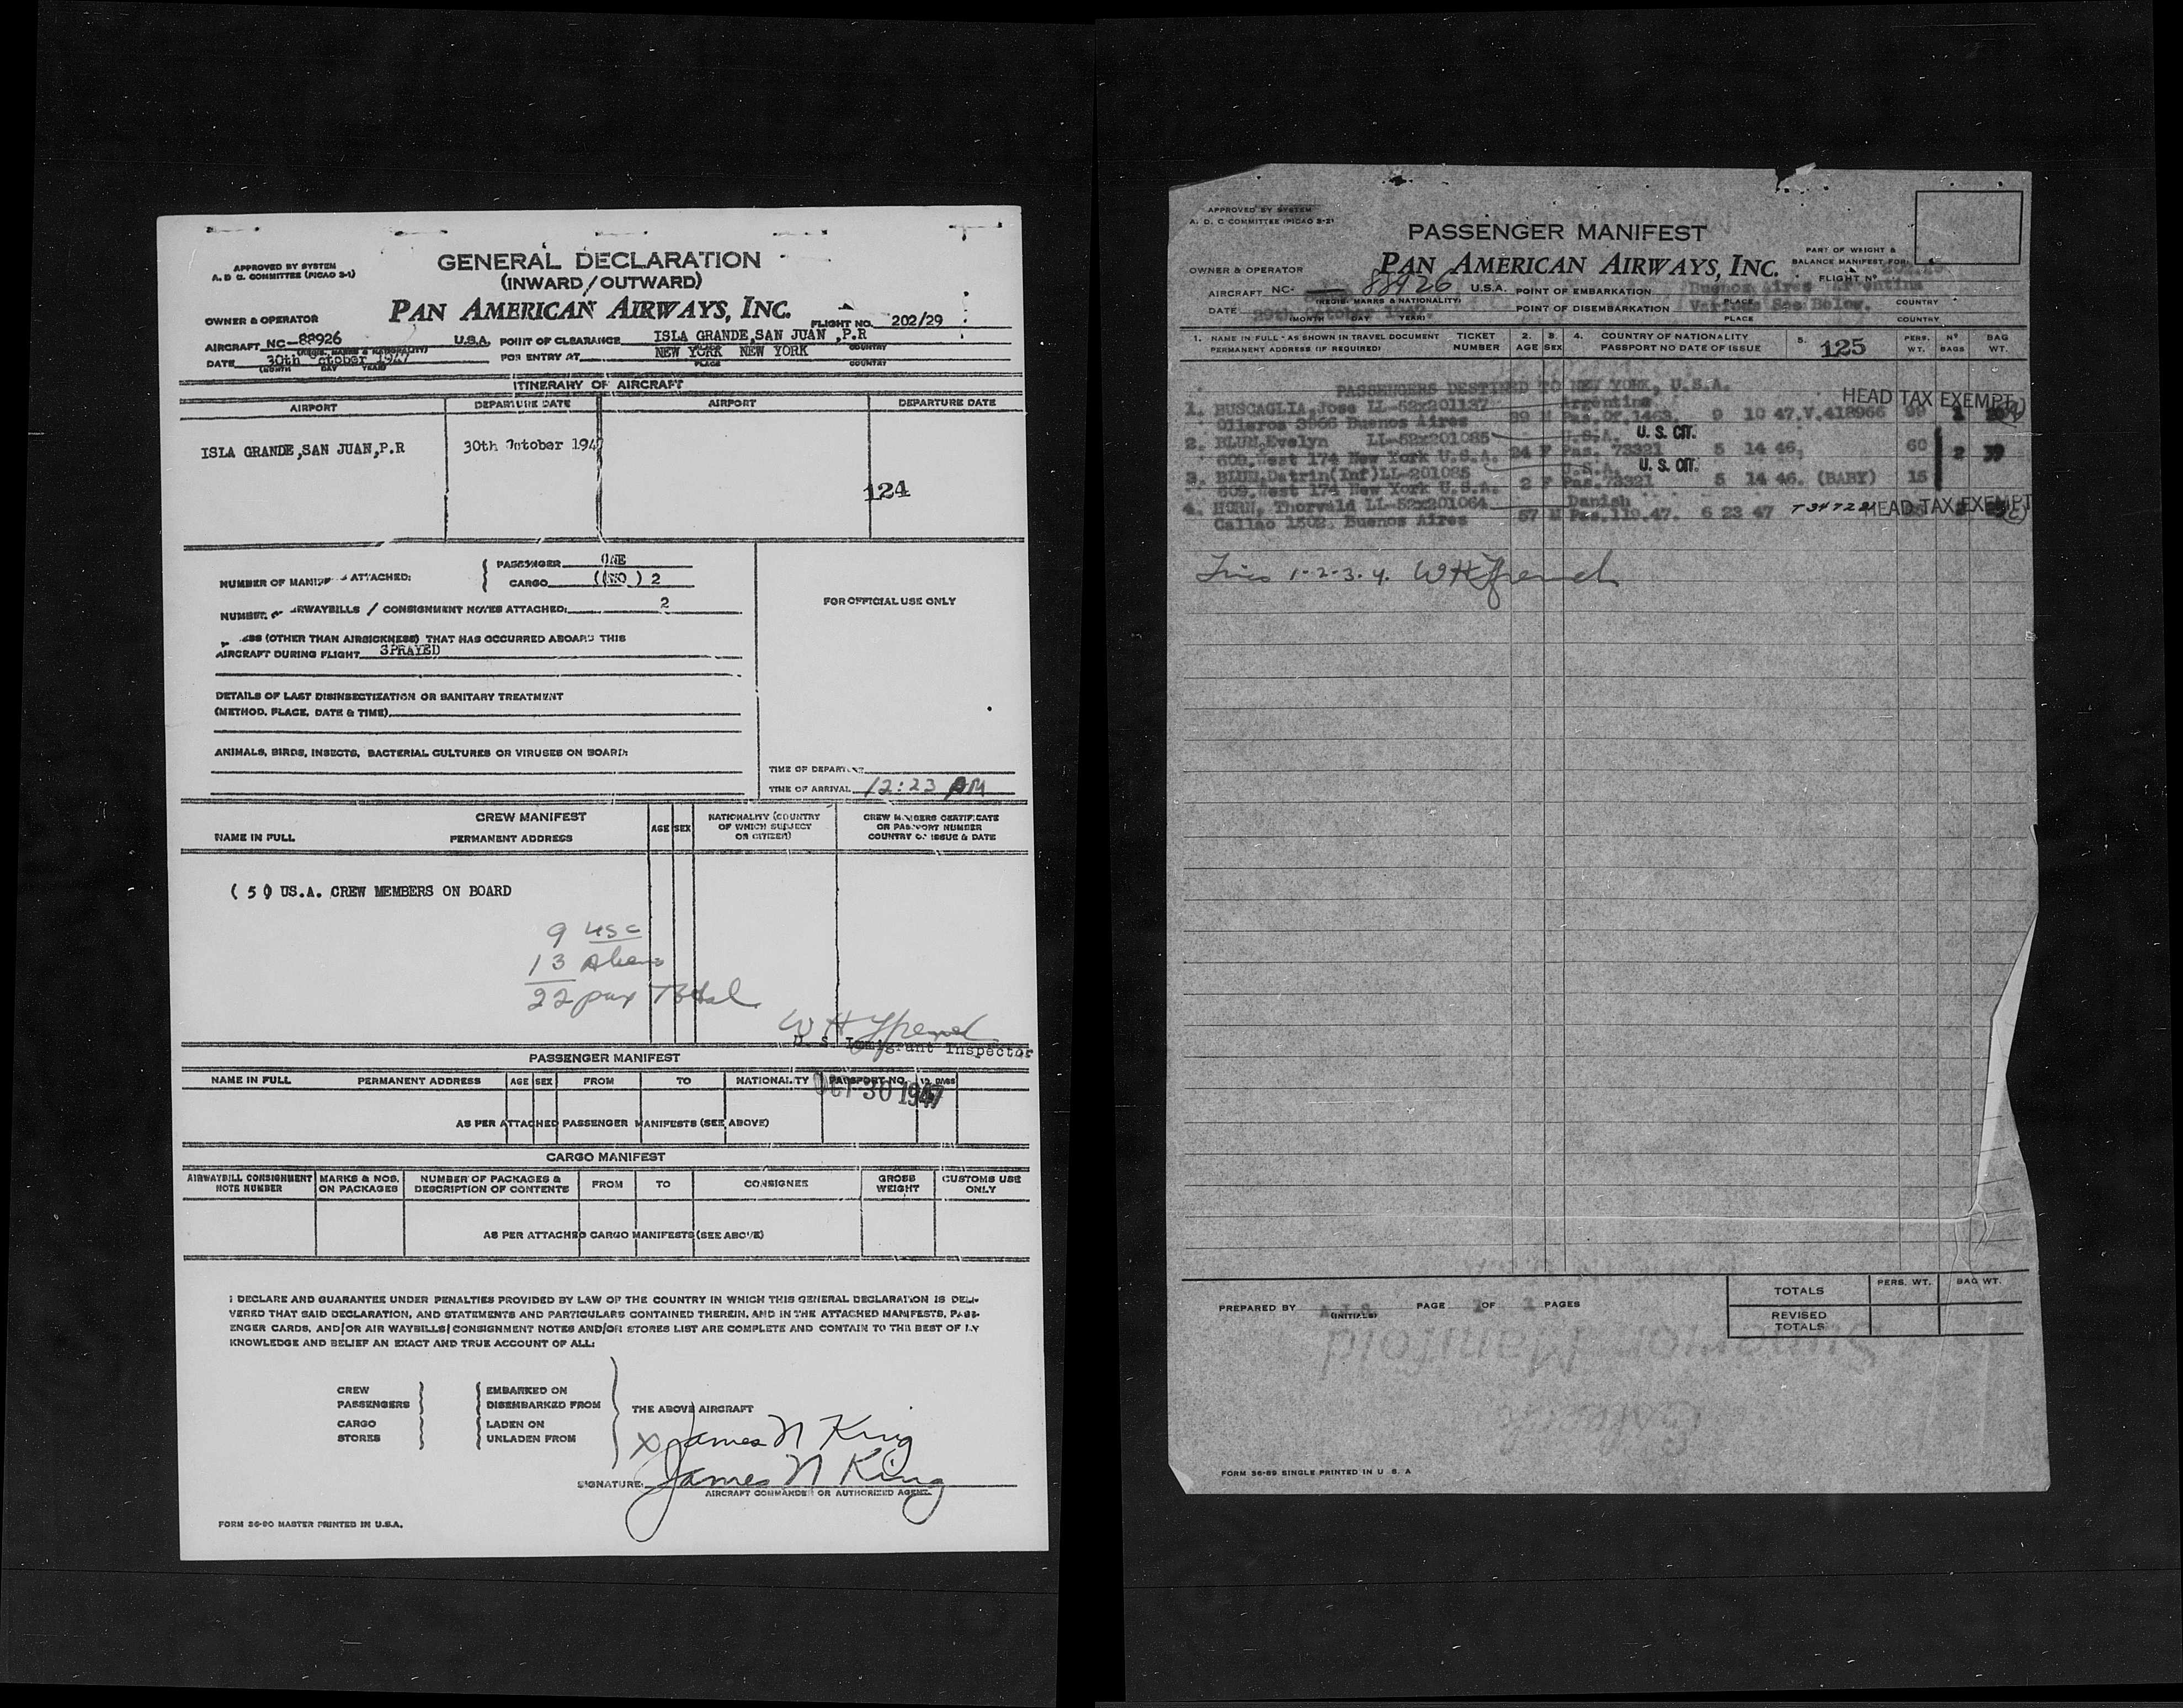 APPROVED BY SYSTEM
A. D. C. COMMITTEE (PICAO 3-1)
GENERAL DECLARATION
(INWARD/OUTWARD)
PAN AMERICAN AIRWAYS, INC.
OWNER & OPERATOR
FLIGHT NO. 202/29
AIRCRAFT NC-88926 U.S.A. POINT OF CLEARANCE ISLA GRANDE,SAN JUAN ,P.R
(REGIS. MARKS & NATIONALITY) COUNTRY
DATE 30th October 1947 FOR ENTRY AT NEW YORK NEW YORK
(MONTH DAY YEAR) PLACE COUNTRY
ITINERARY OF AIRCRAFT
AIRPORT DEPARTURE DATE AIRPORT DEPARTURE DATE
ISLA GRANDE,SAN JUAN,P.R 30th October 1947
124
NUMBER OF ATTACHED: PASSENGER ONE
CARGO (TWO ) 2
NUMBER AIRWAYBILLS / CONSIGNMENT NOTES ATTACHED: 2
FOR OFFICIAL USE ONLY
(OTHER THAN AIRSICKNESS) THAT HAS OCCURRED ABOARD THIS
AIRCRAFT DURING FLIGHT SPRAYED
DETAILS OF LAST DISINSECTIZATION OR SANITARY TREATMENT
(METHOD, PLACE, DATE & TIME)
ANIMALS, BIRDS, INSECTS, BACTERIAL CULTURES OR VIRUSES ON BOARD
TIME OF DEPARTURE
TIME OF ARRIVAL 12:23 PM
CREW MANIFEST
NAME IN FULL PERMANENT ADDRESS AGE SEX
NATIONALITY (COUNTRY OF WHICH SUBJECT OR CITIZEN)
CREW MEMBERS CERTIFICATE OR PASSPORT NUMBER COUNTRY OF ISSUE & DATE
( 5 ) US.A. CREW MEMBERS ON BOARD
9 USC
13 Aliens
22 pax Total
W H French
U. S. Immigrant Inspector
PASSENGER MANIFEST
NAME IN FULL PERMANENT ADDRESS AGE SEX FROM TO NATIONALITY PASSPORT NO.
OCT 30 1947
AS PER ATTACHED PASSENGER MANIFESTS (SEE ABOVE)
CARGO MANIFEST
AIRWAYBILL CONSIGNMENT NOTE NUMBER
MARKS & NOS. ON PACKAGES
NUMBER OF PACKAGES & DESCRIPTION OF CONTENTS
FROM TO CONSIGNEE GROSS WEIGHT CUSTOMS USE ONLY
AS PER ATTACHED CARGO MANIFESTS (SEE ABOVE)
I DECLARE AND GUARANTEE UNDER PENALTIES PROVIDED BY LAW OF THE COUNTRY IN WHICH THIS GENERAL DECLARATION IS DELI-
VERED THAT SAID DECLARATION, AND STATEMENTS AND PARTICULARS CONTAINED THEREIN, AND IN THE ATTACHED MANIFESTS, PASS-
ENGER CARDS, AND/OR AIR WAYBILLS/CONSIGNMENT NOTES AND/OR STORES LIST ARE COMPLETE AND CONTAIN TO THE BEST OF MY
KNOWLEDGE AND BELIEF AN EXACT AND TRUE ACCOUNT OF ALL:
CREW EMBARKED ON
PASSENGERS DISEMBARKED FROM THE ABOVE AIRCRAFT
CARGO LADEN ON
STORES UNLADEN FROM
X James N King
SIGNATURE: James N King
AIRCRAFT COMMANDER OR AUTHORIZED AGENT.
FORM 36-80 MASTER PRINTED IN U.S.A.
APPROVED BY SYSTEM
A. D. C COMMITTEE (PICAO 3-2)
PASSENGER MANIFEST
PAN AMERICAN AIRWAYS, INC.
PART OF WEIGHT & BALANCE MANIFEST FOR:
OWNER & OPERATOR
FLIGHT Nº
AIRCRAFT NC- 88926 U.S.A. POINT OF EMBARKATION Buenos Aires Argentina
(REGIS. MARKS & NATIONALITY) PLACE COUNTRY
DATE 29th October 1947. POINT OF DISEMBARKATION Various See Below.
(MONTH DAY YEAR) PLACE COUNTRY
1. NAME IN FULL - AS SHOWN IN TRAVEL DOCUMENT PERMANENT ADDRESS (IF REQUIRED)
TICKET NUMBER 2. AGE 3. SEX 4. COUNTRY OF NATIONALITY PASSPORT NO DATE OF ISSUE 5. 125 PERS. WT. Nº BAGS BAG WT.
PASSENGERS DESTINED TO NEW YORK, U.S.A.
HEAD TAX EXEMPT
1. BUSCAGLIA,Jose LL-52x201137 Argentina
Olleros 3966 Buenos Aires 39 M Pas.Of.1463 9 10 47.V.418966 99
2. BLUM,Evelyn LL-52x201085 U.S.A. U. S. CIT.
609,West 174 New York U.S.A. 24 F Pas. 73321 5 14 46, 60 2 39
3. BLUM,Datrin(Inf)LL-201085 U.S.A. U. S. CIT.
609,West 174 New York U.S.A. 2 F Pas.73321 5 14 46. (BABY) 15
4. HORN, Thorvald LL-52x201064 Danish
Callao 1502, Buenos Aires 57 M Pas.110.47. 6 23 47 HEAD TAX EXEMPT
Lines 1-2-3. 4. W H French
TOTALS PERS. WT. BAG WT.
REVISED TOTALS
PREPARED BY (INITIALS) PAGE OF PAGES
FORM 36-89 SINGLE PRINTED IN U. S. A